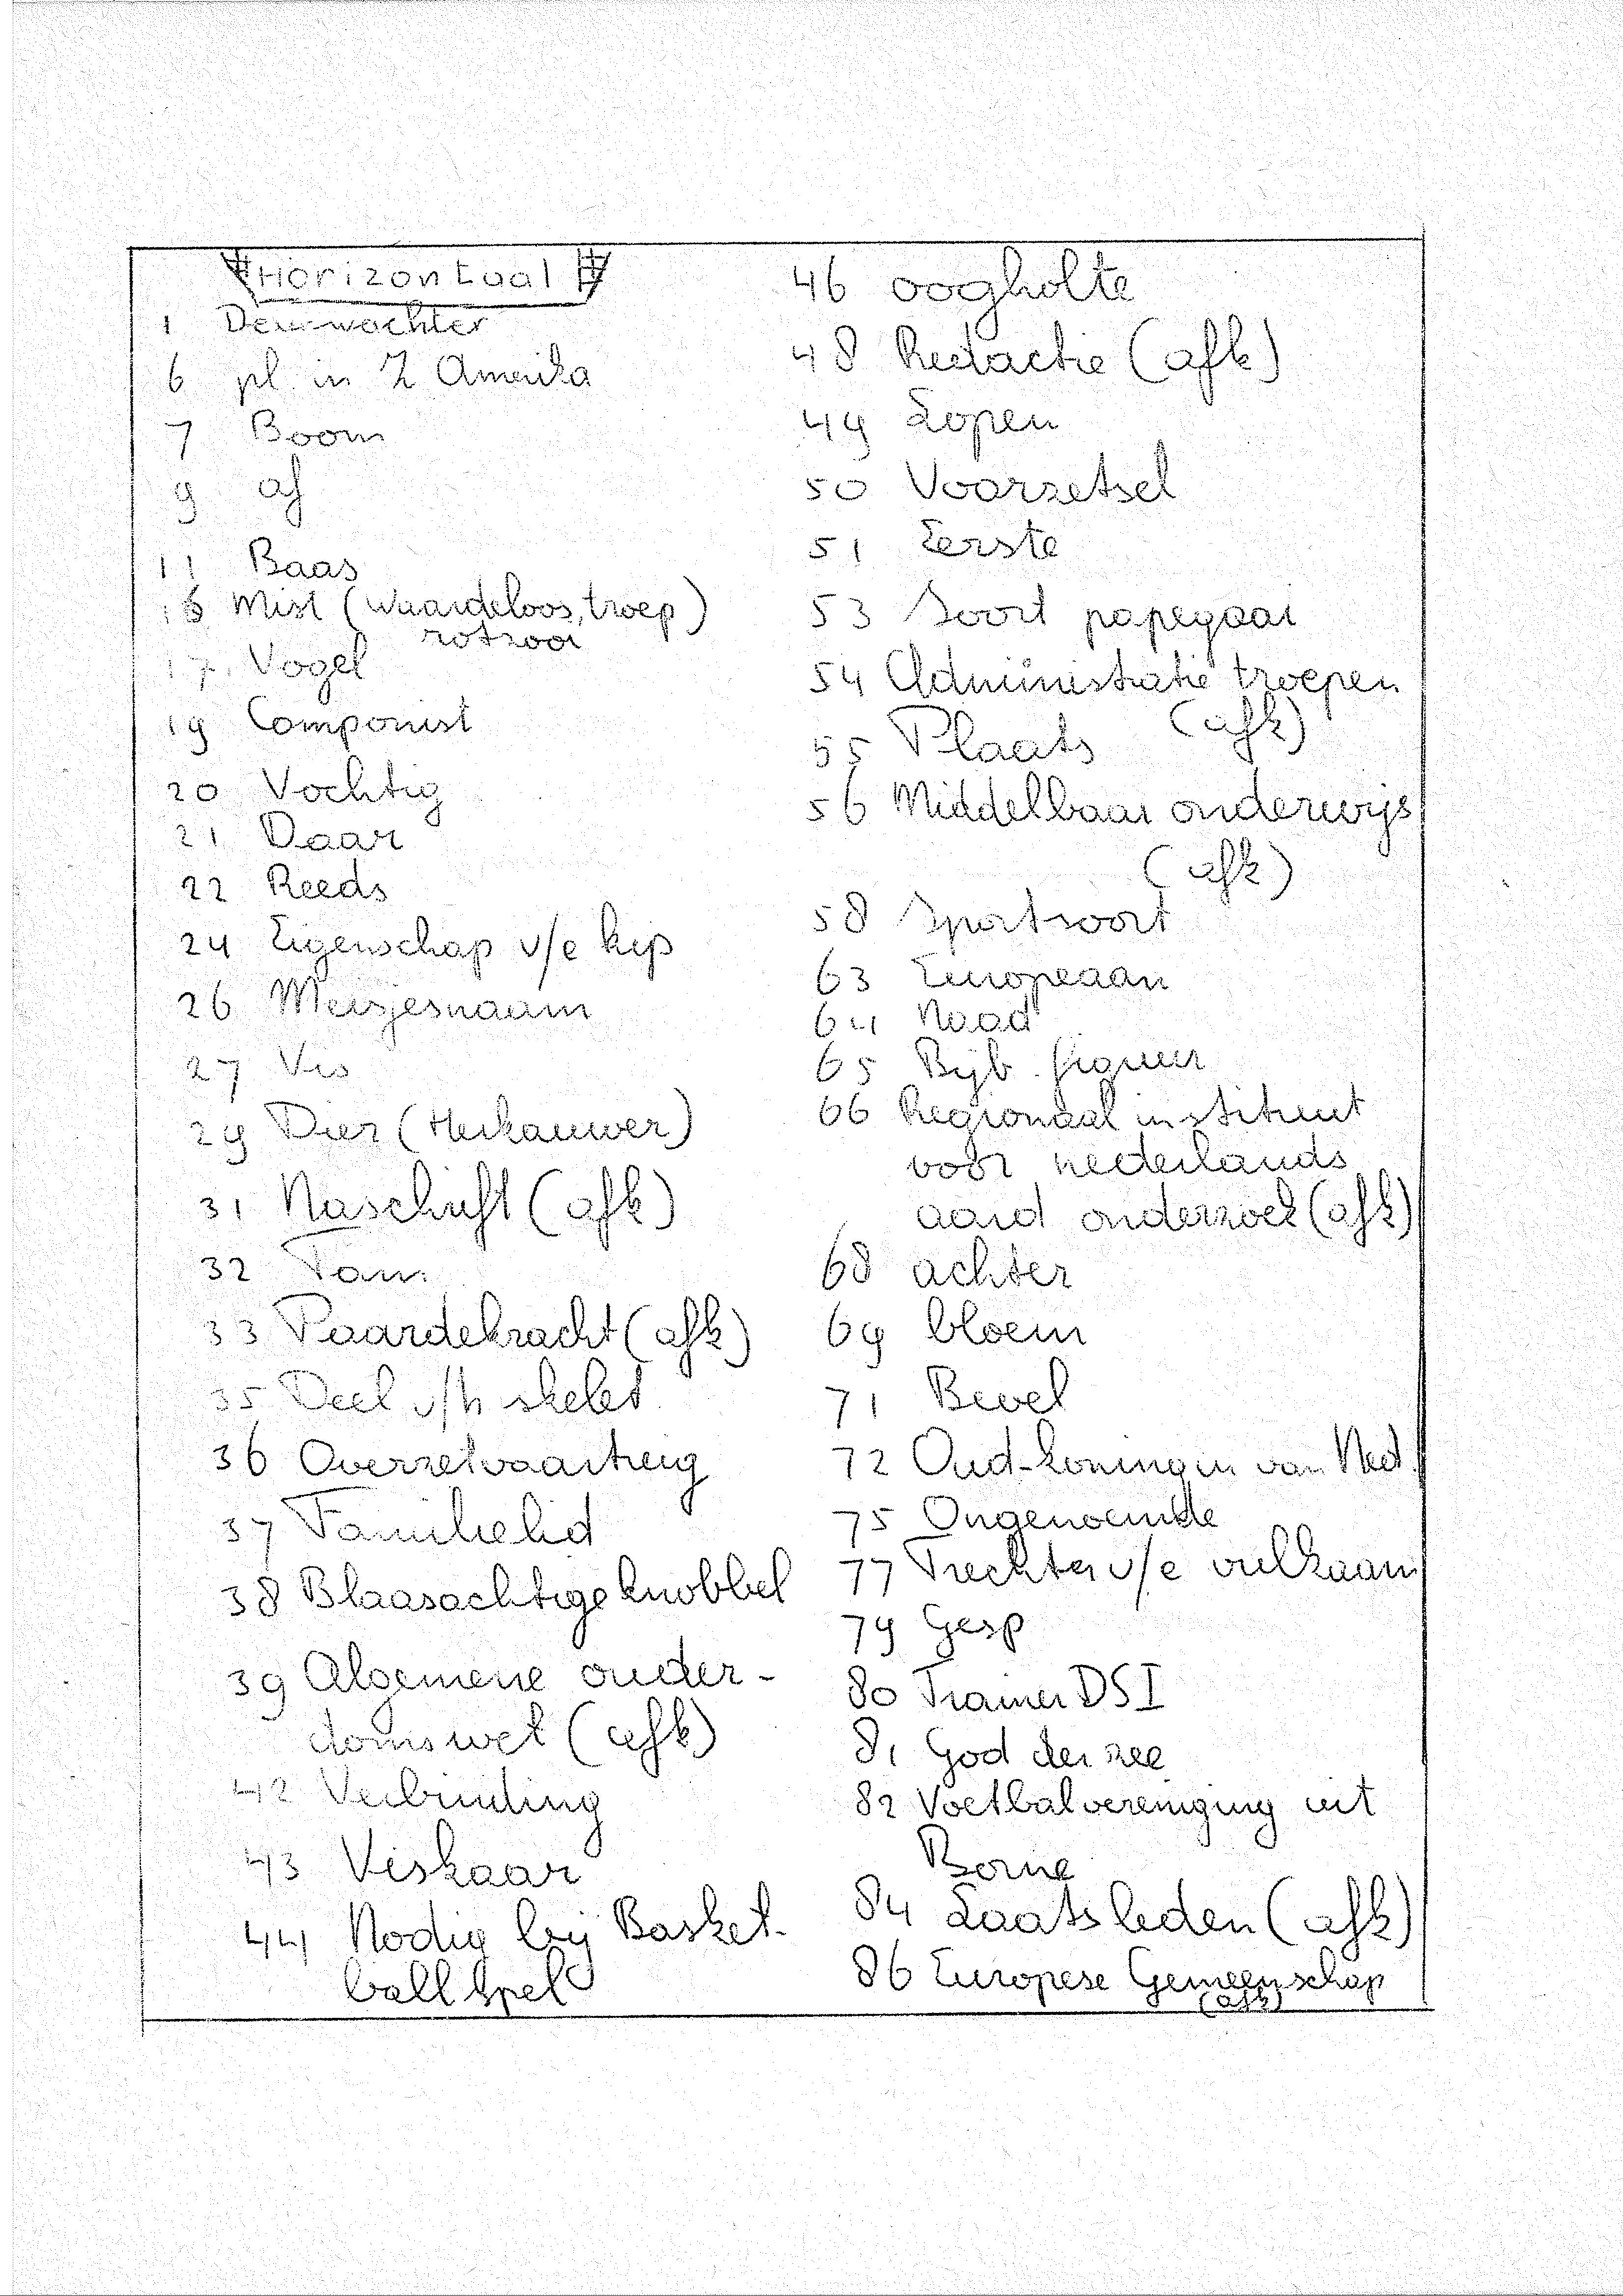 Horizontaal
1 Deurwachter
6 pl. in Z Amerika
7 Boom
9 af
11 Baas
16 Mist (waardeloos, troep)
rotzooi
17. Vogel
19 Componist
20 Vochtig
21 Daar
22 Reeds
24 Eigenschap v/e kip
26 Meisjesnaam
27 Vis
29 Dier (Herkauwer)
31 Naschrift (afk)
32 Tam
33 Paardekracht (afk)
35 Deel v/h skelet
36 Overzetvaartuig
37 Familielid
38 Blaasachtige knobbel
39 Algemene ouder-
domswet (afk)
42 Verbinding
43 Viskaar
44 Nodig bij Basket-
ball spel
46 oogholte
48 Redactie (afk)
49 Lopen
50 Voorzetsel
51 Eerste
53 Soort papegaai
54 Administratie troepen
(afk)
55 Plaats
56 Middelbaar onderwijs
(afk)
58 Sportsoort
63 Europeaan
64 Naad
65 Bijb. figuur
66 Regionaal instituut
voor nederlands
aard onderzoek (afk)
68 achter
69 bloem
71 Bevel
72 Oud-koningin van Ned.
75 Ongenoemde
77 Trechter v/e vulkaan
79 Gesp
80 Trainer DSI
81 God der zee
82 Voetbalvereniging uit
Borne
84 Laatsleden (afk)
86 Europese Gemeenschap
(afk)